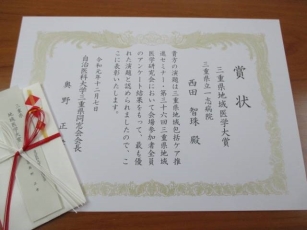 賞状
三重県地域医学大賞
三重県立一志病院
西田 智珠 殿
貴方の演題は三重県地域包括ケア推
進セミナー・第三十六回三重県地域
医学研究会において会場参加者全員
のアンケート結果をもって、最も優
れた演題と認められましたので、こ
こに表彰いたします。
令和元年十二月七日
自治医科大学三重県同窓会会長
奥野 正